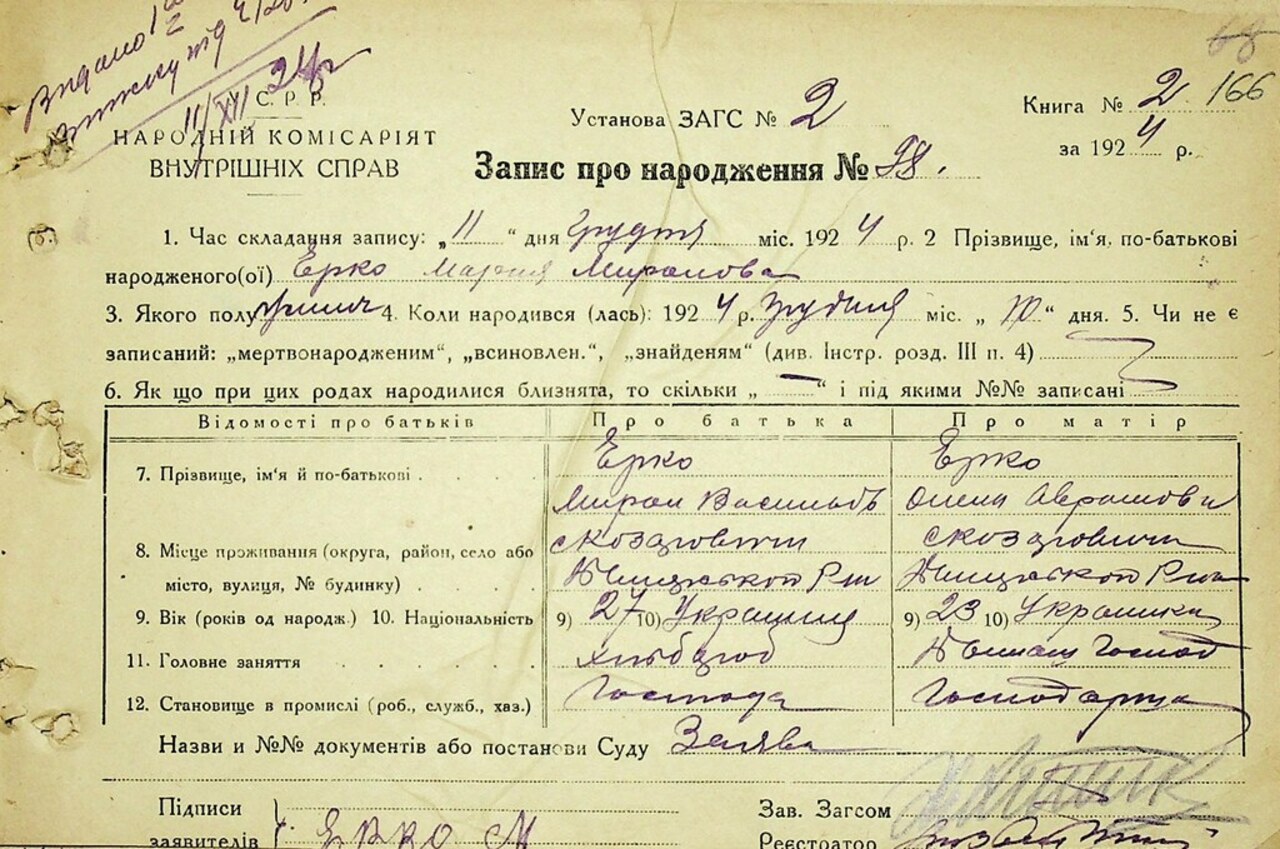 Видано
11/XII 24 р
У. С. Р. Р.
НАРОДНІЙ КОМІСАРІЯТ
ВНУТРІШНІХ СПРАВ
Установа ЗАГС № 2
Книга № 2 166
за 1924 р.
Запис про народження № 98.
1. Час складання запису: „11“ дня Грудня міс. 1924 р. 2 Прізвище, ім'я, по-батькові
народженого(ої) Ерко Мария Миронова
3. Якого полу 4. Коли народився (лась): 1924 р. Грудня міс. „10“ дня. 5. Чи не є
записаний: „мертвонародженим“, „всиновлен.“, „знайденям“ (див. Інстр. розд. III п. 4)
6. Як що при цих родах народилися близнята, то скільки „—“ і під якими №№ записані
Відомості про батьків Про батька Про матір
7. Прізвище, ім'я й по-батькові Ерко Ерко
Мирон Васильов
8. Місце проживання (округа, район, село або
місто, вулиця, № будинку)
9. Вік (років од народж.) 10. Національність 9) 27 10) Украинец 9) 23 10) Украинка
11. Головне заняття Хлібороб
12. Становище в промислі (роб., служб., хаз.) Господар Господарка
Назви и №№ документів або постанови Суду Заява
Підписи
заявителів ЕРКО М
Зав. Загсом
Реєстратор